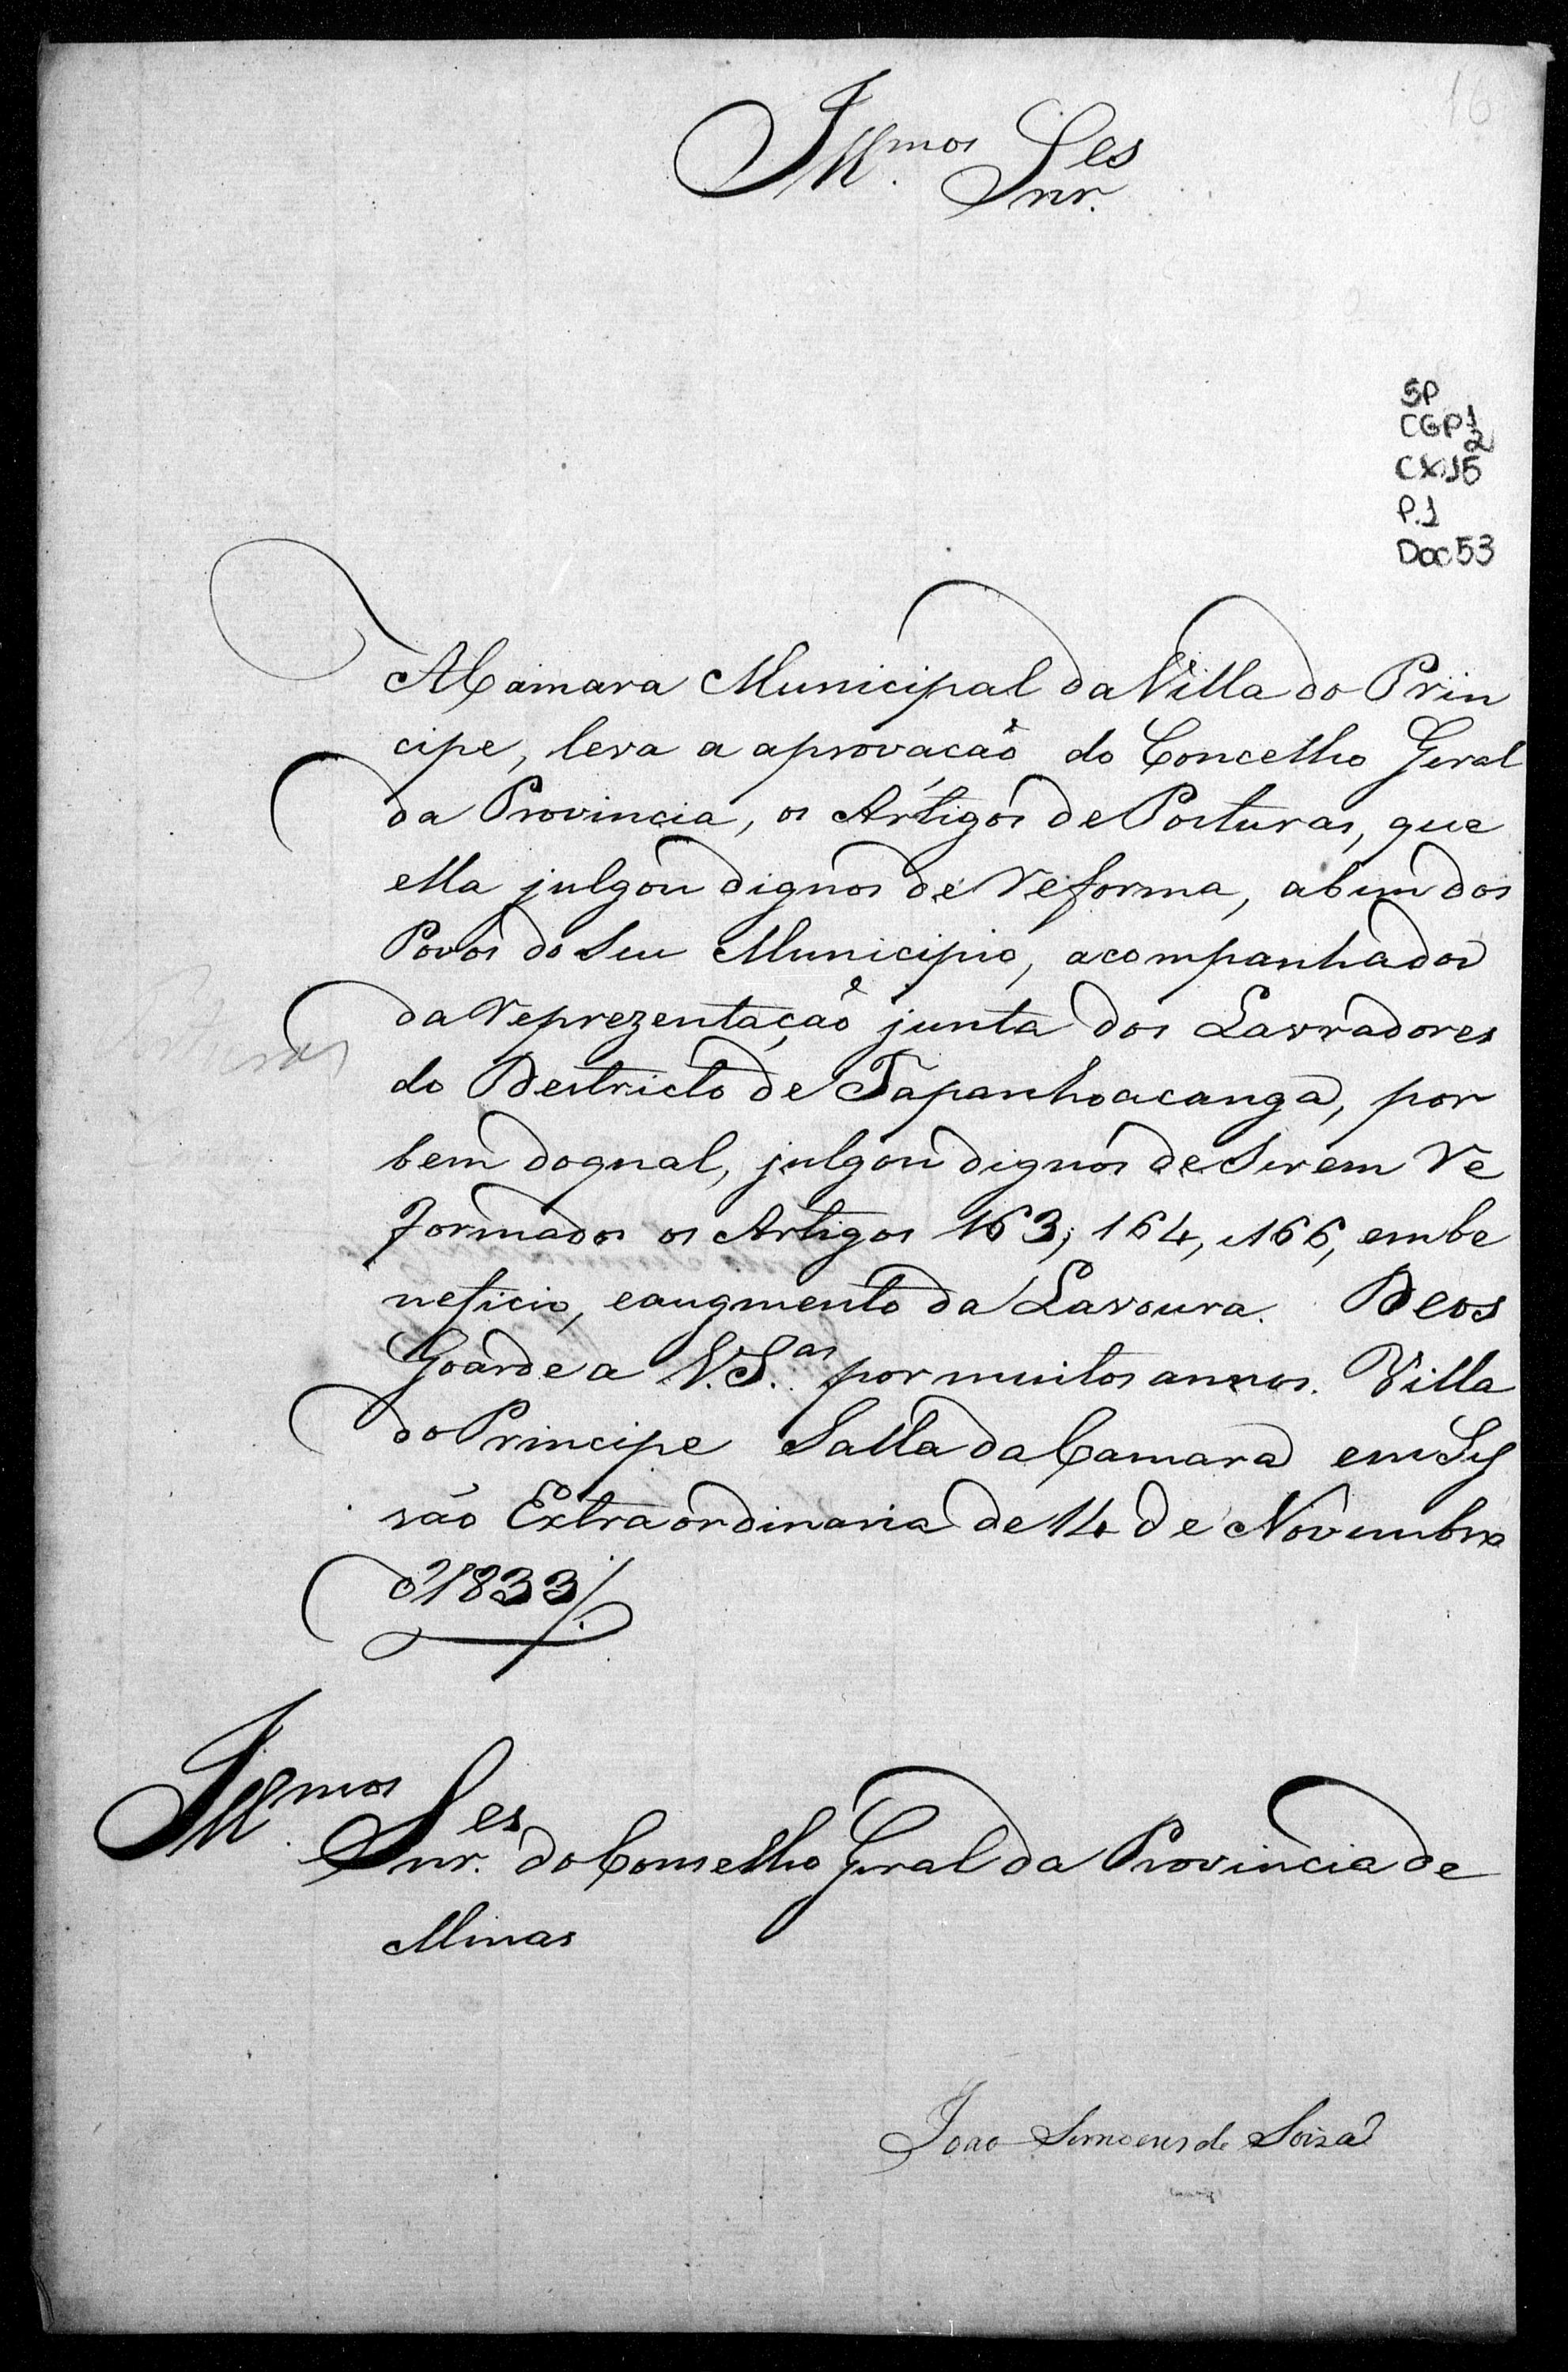 16
Illmos Snres
SP
CGP 1
2
CX.15
P.1
Doc 53
A Camara Municipal da Villa do Prin
cipe, leva a aprovacaõ do Concelho Geral
da Provincia, os Artigos de Posturas, que
ella julgou dignos de reforma, a bem dos
Povos do Seu Municipio, acompanhados
da reprezentaçaõ junta dos Lavradores
do Destricto de Tapanhoacanga, por
bem do qual, julgou dignos de Serem re
formados os Artigos 163, 164, e 166, em be
neficio, e augmento da Lavoura. Deos
Goarde a V.S.as por muitos annos. Villa
do Principe Salla da Camara em Ses
são Extraordinaria de 14 de Novembro
d'1833/.
Illmos Snres do Conselho Geral da Provincia de
Minas
Joao Simoens de Soiza